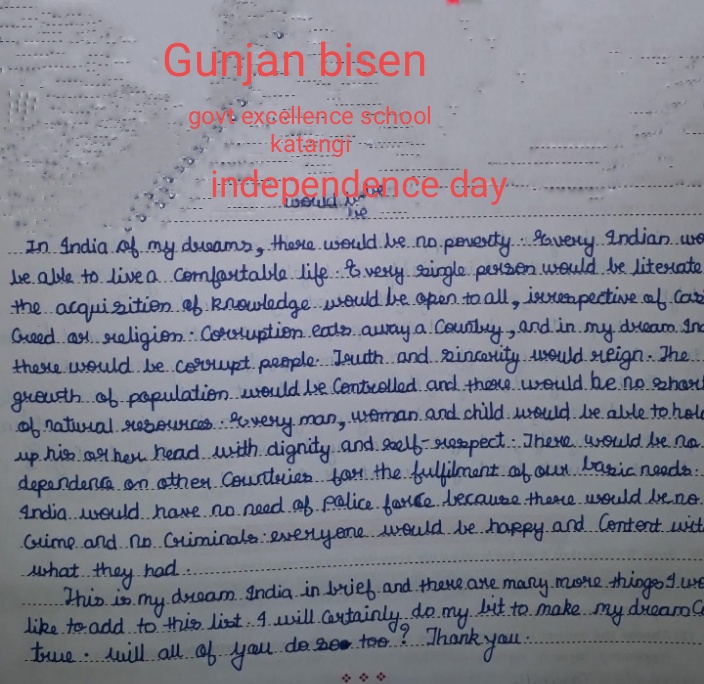 Gunjan bisen
govt excellence school
katangi
independence day
would
be
In India of my dreams, there would be no poverty. Every Indian wo
be able to live a comfortable life. Every single person would be literate
the acquisition of knowledge would be open to all, irrespective of Cas
Creed or religion. Corruption eats away a Country, and in my dream Ind
there would be corrupt people. Truth and sincerity would reign. The
growth of population would be Controlled and there would be no shor
of natural resources. Every man, woman and child would be able to hol
up his or her head with dignity and self-respect. There would be no
dependence on other Countries for the fulfilment of our basic needs.
India would have no need of police force because there would be no
Crime and no Criminals. everyone would be happy and Content wit
what they had.
This is my dream India in brief and there are many more things I wo
like to add to this list. I will Certainly do my bit to make my dream C
true. will all of you do too? Thank you.